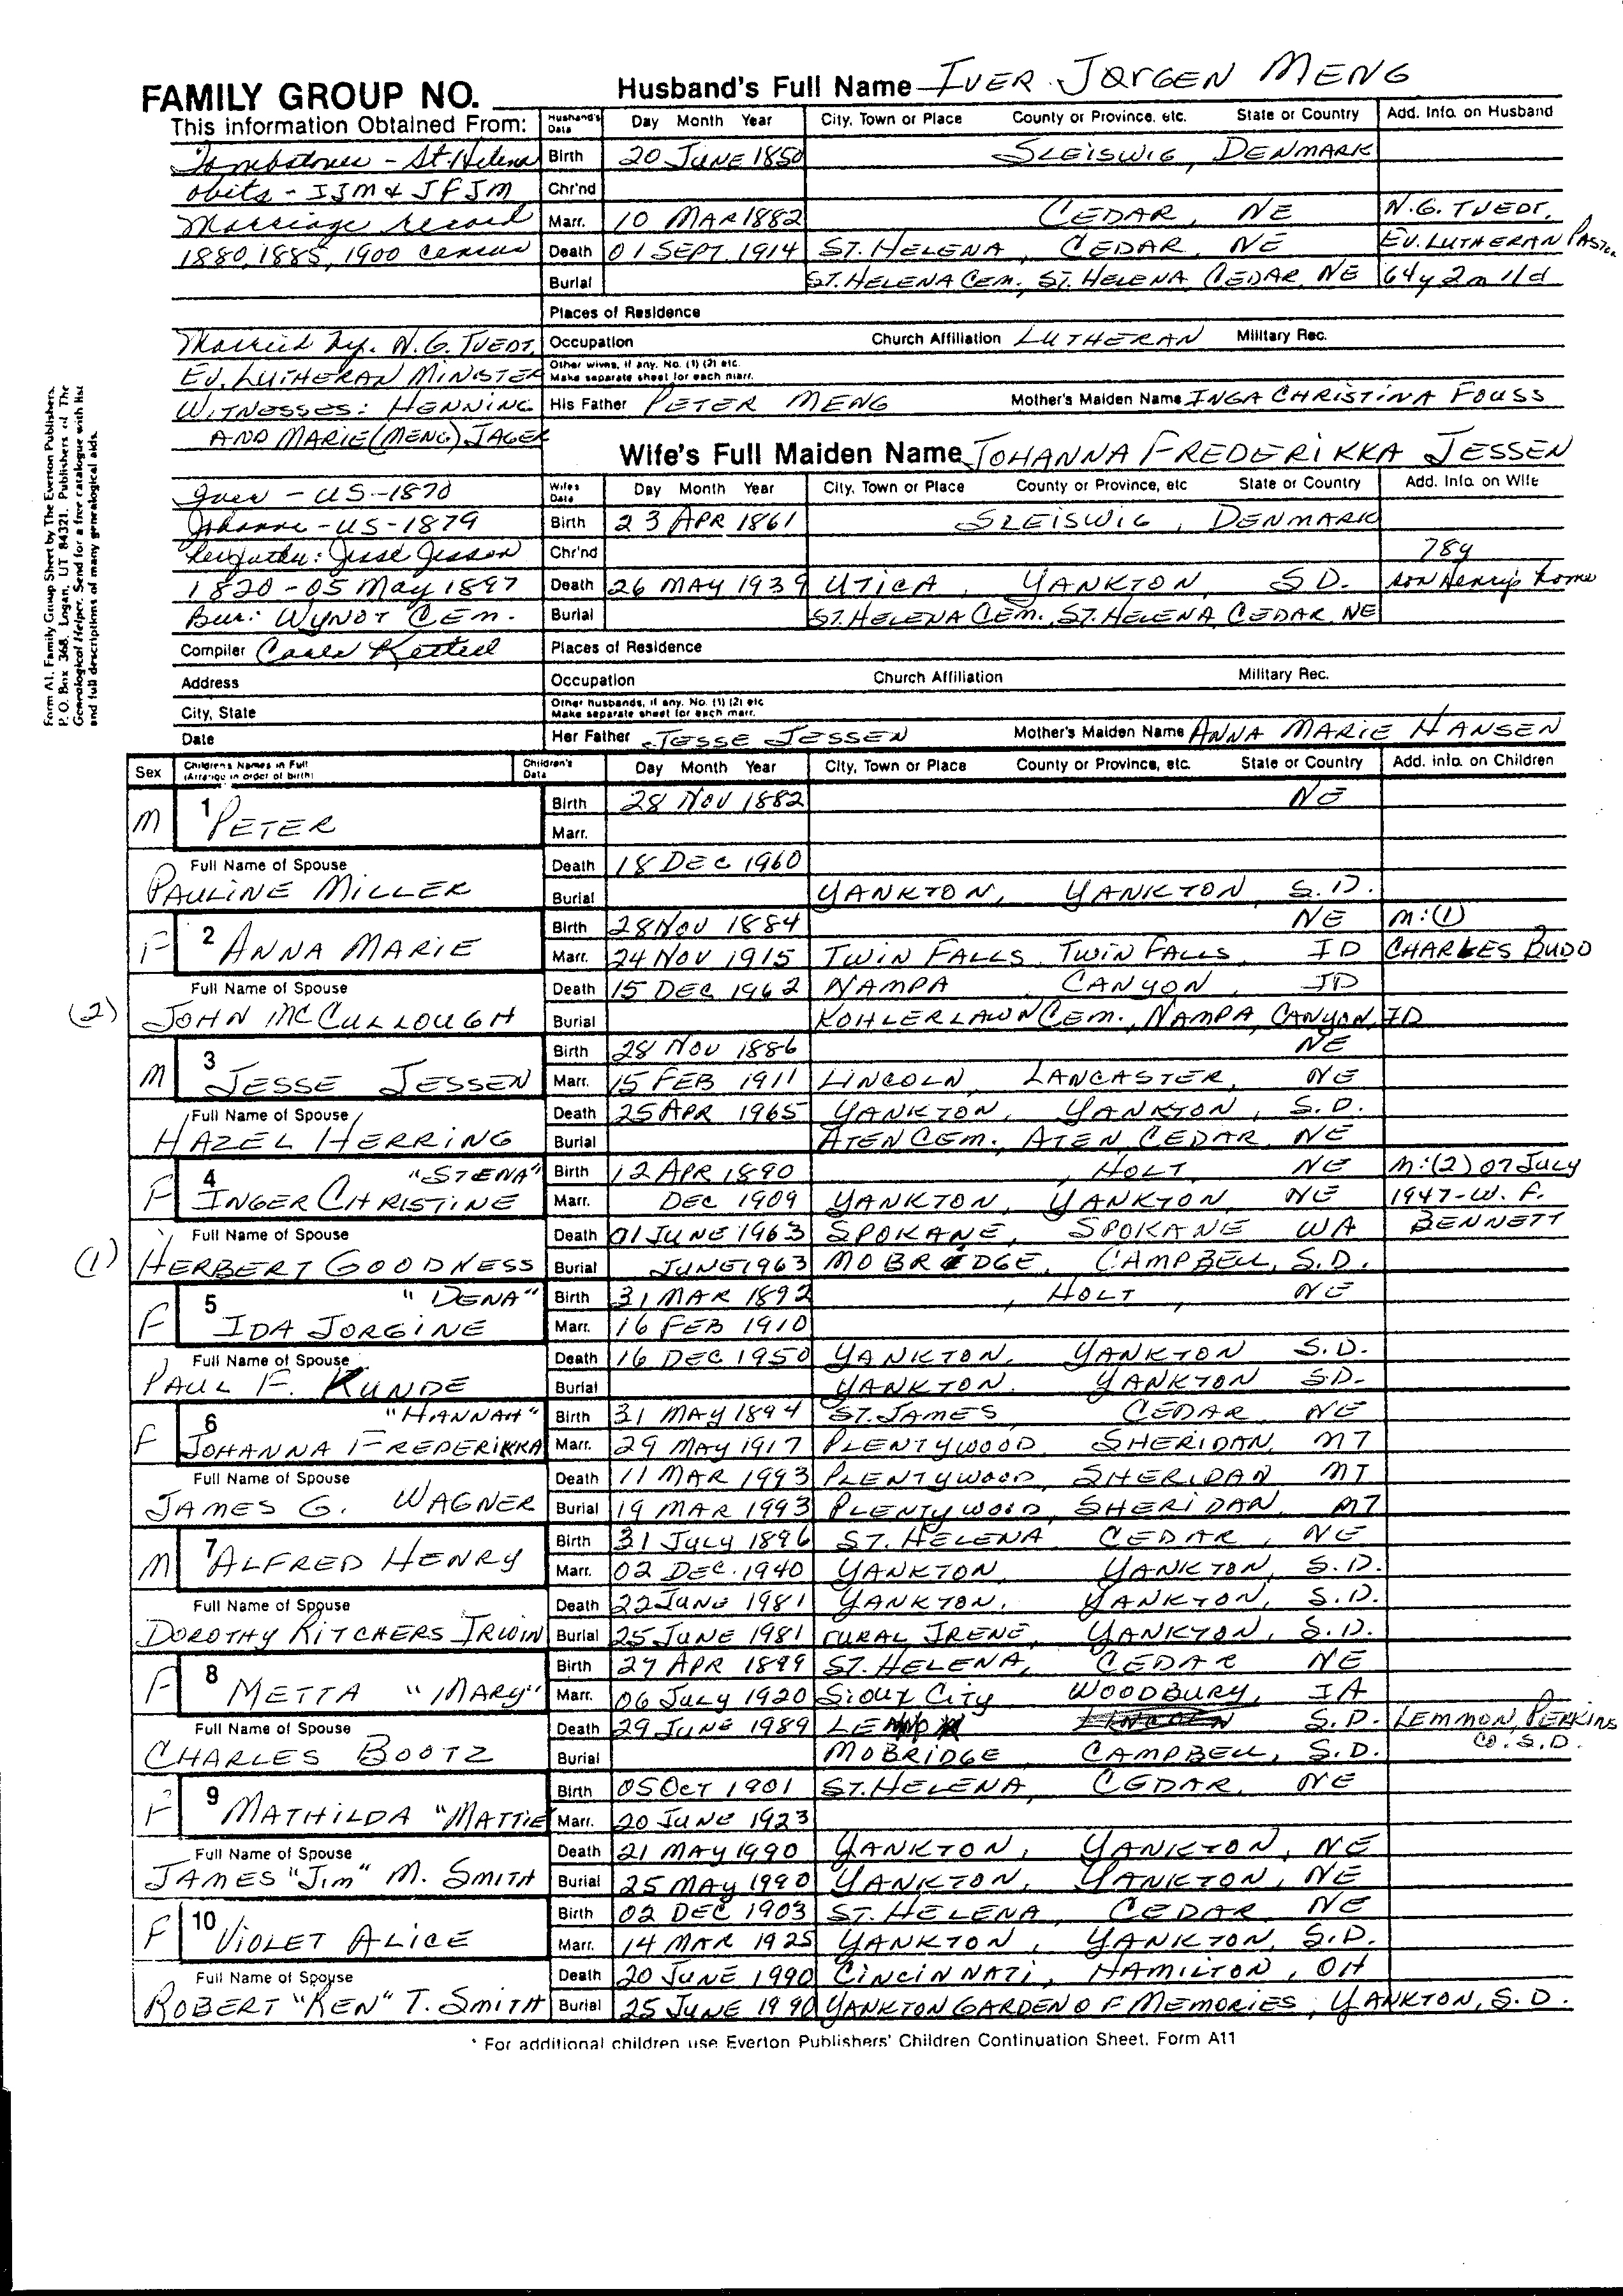 Husband's Full Name IVER JORGEN MENG
FAMILY GROUP NO.
This information Obtained From:
Husband's Data Day Month Year City, Town or Place County or Province, etc. State or Country Add. Info. on Husband
Tombstones - St. Helena Birth 20 JUNE 1850 SLEISWIG, DENMARK
obits - IJM & JFJM Chr'nd
Marriage record Marr. 10 MAR 1882 CEDAR, NE N.G. TVEDT,
1880, 1885, 1900 census Death 01 SEPT. 1914 ST. HELENA, CEDAR, NE EV. LUTHERAN PASTOR
Burial ST. HELENA CEM., ST. HELENA, CEDAR, NE 64y 2m 11d
Places of Residence
Married by. N.G. TVEDT, Occupation Church Affiliation LUTHERAN Military Rec.
EV. LUTHERAN MINISTER Other wives, if any. No. (1) (2) etc. Make separate sheet for each marr.
WITNESSES: HENNING His Father PETER MENG Mother's Maiden Name INGA CHRISTINA FOUSS
AND MARIE (MENG) JAGER
Wife's Full Maiden Name JOHANNA FREDERIKKA JESSEN
Iver - US - 1870 Wife's Data Day Month Year City, Town or Place County or Province, etc State or Country Add. Info. on Wife
Johanna - US - 1879 Birth 23 APR 1861 SLEISWIG, DENMARK
Her father: Jesse Jessen Chr'nd 78y
1820 - 05 May 1897 Death 26 MAY 1939 UTICA, YANKTON, S D. son Henry's home
Bur: WYNOT CEM. Burial ST. HELENA CEM., ST. HELENA, CEDAR, NE
Compiler Places of Residence
Address Occupation Church Affiliation Military Rec.
City, State Other husbands, if any. No. (1) (2) etc. Make separate sheet for each marr.
Date Her Father JESSE JESSEN Mother's Maiden Name ANNA MARIE HANSEN
Sex Children's Names in Full (Arrange in order of birth) Children's Data Day Month Year City, Town or Place County or Province, etc. State or Country Add. info. on Children
Birth 28 NOV 1882 NE
M 1 PETER Marr.
Full Name of Spouse Death 18 DEC 1960
PAULINE MILLER Burial YANKTON, YANKTON, S.D.
Birth 28 NOV 1884 NE M:(1)
F 2 ANNA MARIE Marr. 24 NOV 1915 TWIN FALLS, TWIN FALLS, ID CHARLES BUDD
Full Name of Spouse Death 15 DEC 1962 NAMPA, CANYON, ID
(2) JOHN MCCULLOUGH Burial KOHLERLAWN CEM., NAMPA, CANYON, ID
Birth 28 NOV 1886 NE
M 3 JESSE JESSEN Marr. 15 FEB 1911 LINCOLN, LANCASTER, NE
Full Name of Spouse Death 25 APR 1965 YANKTON, YANKTON, S.D.
HAZEL HERRING Burial ATEN CEM., ATEN, CEDAR, NE
4 "STENA" Birth 12 APR 1890 , HOLT, NE M:(2) 07 JULY
F INGER CHRISTINE Marr. DEC 1909 YANKTON, YANKTON, NE 1947 - W. F.
Full Name of Spouse Death 01 JUNE 1963 SPOKANE, SPOKANE WA BENNETT
(1) HERBERT GOODNESS Burial JUNE 1963 MOBRIDGE, CAMPBELL, S.D.
5 "DENA" Birth 31 MAR 1892 , HOLT, NE
F IDA JORGINE Marr. 16 FEB 1910
Full Name of Spouse Death 16 DEC 1950 YANKTON, YANKTON S.D.
PAUL F. KUNDE Burial YANKTON, YANKTON S.D.
6 "HANNAH" Birth 31 MAY 1894 ST. JAMES, CEDAR, NE
F JOHANNA FREDERIKKA Marr. 29 MAY 1917 PLENTYWOOD, SHERIDAN, MT
Full Name of Spouse Death 11 MAR 1993 PLENTYWOOD, SHERIDAN MT
JAMES G. WAGNER Burial 19 MAR 1993 PLENTYWOOD, SHERIDAN, MT
Birth 31 JULY 1896 ST. HELENA CEDAR, NE
M 7 ALFRED HENRY Marr. 02 DEC. 1940 YANKTON, YANKTON, S.D.
Full Name of Spouse Death 22 JUNE 1981 YANKTON, YANKTON, S.D.
DOROTHY KITCHERS IRWIN Burial 25 JUNE 1981 RURAL IRENE, YANKTON, S.D.
Birth 27 APR 1899 ST. HELENA, CEDAR NE
F 8 METTA "MARY" Marr. 06 JULY 1920 SIOUX CITY WOODBURY, IA
Full Name of Spouse Death 29 JUNE 1989 S.D. LEMMON, PERKINS
CHARLES BOOTZ Burial MOBRIDGE CAMPBELL, S.D. CO. S.D.
Birth 05 OCT 1901 ST. HELENA, CEDAR, NE
F 9 MATHILDA "MATTIE Marr. 20 JUNE 1923
Full Name of Spouse Death 21 MAY 1990 YANKTON, YANKTON, NE
JAMES "JIM" M. SMITH Burial 25 MAY 1990 YANKTON, YANKTON, NE
Birth 02 DEC 1903 ST. HELENA, CEDAR, NE
F 10 VIOLET ALICE Marr. 14 MAR 1925 YANKTON, YANKTON, S.D.
Full Name of Spouse Death 20 JUNE 1990 CINCINNATI, HAMILTON, OH
ROBERT "KEN" T. SMITH Burial 25 JUNE 1990 YANKTON GARDEN OF MEMORIES, YANKTON, S.D.
* For additional children use Everton Publishers' Children Continuation Sheet. Form A11
Form A1. Family Group Sheet by The Everton Publishers,
P. O. Box 368, Logan, UT 84321. Publishers of The
Genealogical Helper. Send for a free catalogue with list
and full descriptions of many genealogical aids.